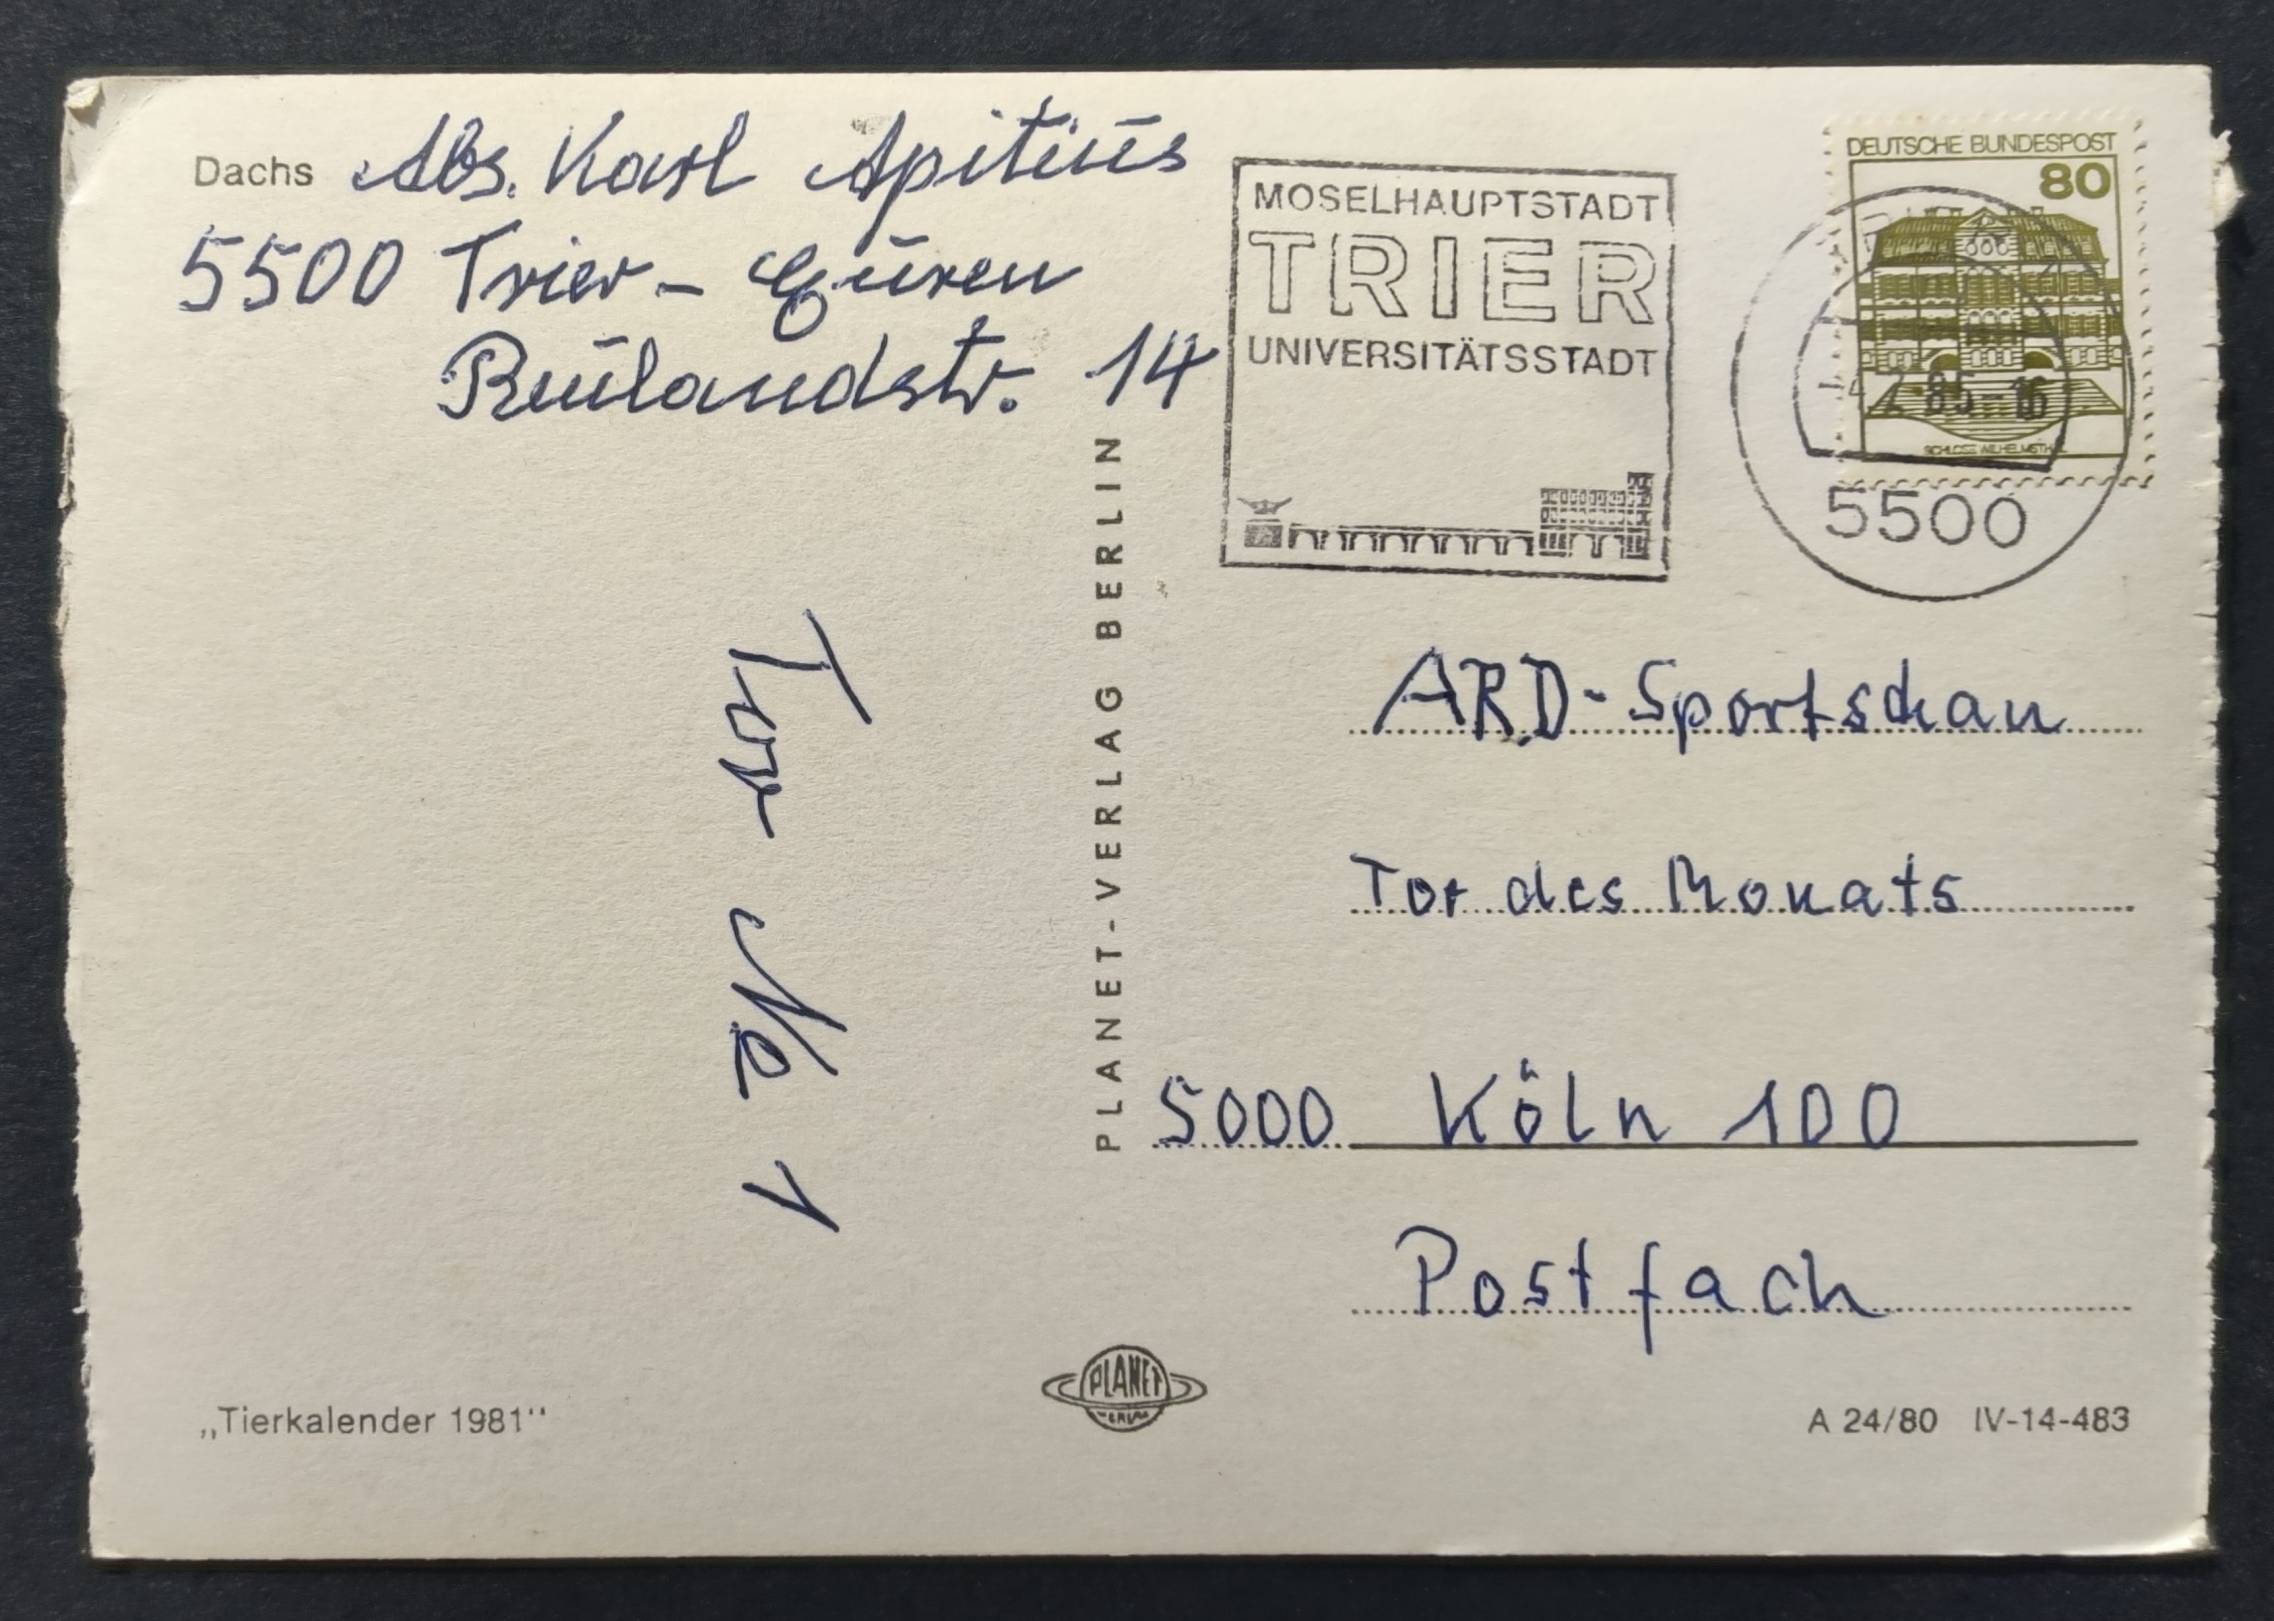 Dachs
Abs. Karl Apitius
5500 Trier - Euren
Rulandstr. 14
MOSELHAUPTSTADT
TRIER
UNIVERSITÄTSSTADT
DEUTSCHE BUNDESPOST
80
85-16
SCHLOSS WILHELMSTHAL
5500
Tor No 1
PLANET-VERLAG BERLIN
ARD-Sportschau
Tor des Monats
5000 Köln 100
Postfach
„Tierkalender 1981“
PLANET
A 24/80 IV-14-483